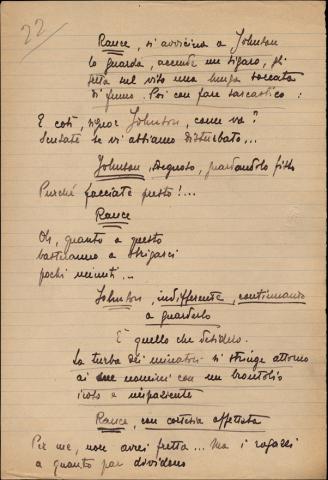 22
Rance, si avvicina a Johnson
lo guarda, accende un sigaro, gli
getta sul viso una lunga boccata
di fumo. Poi con fare sarcastico :
E così, signor Johnson, come va?
Scusate se vi abbiamo disturbato...
Johnson, sdegnoso, guardandolo fisso
Purché facciate presto!...
Rance
Oh, quanto a questo
basteranno a sbrigarci
pochi minuti...
Johnson, indifferente, continuando
a guardarlo
È quello che desidero.
La turba dei minatori si stringe attorno
ai due uomini con un brontolio
cupo e impaziente
Rance, con cortesia affettata
Per me, non avrei fretta... Ma i ragazzi
a quanto par dividono